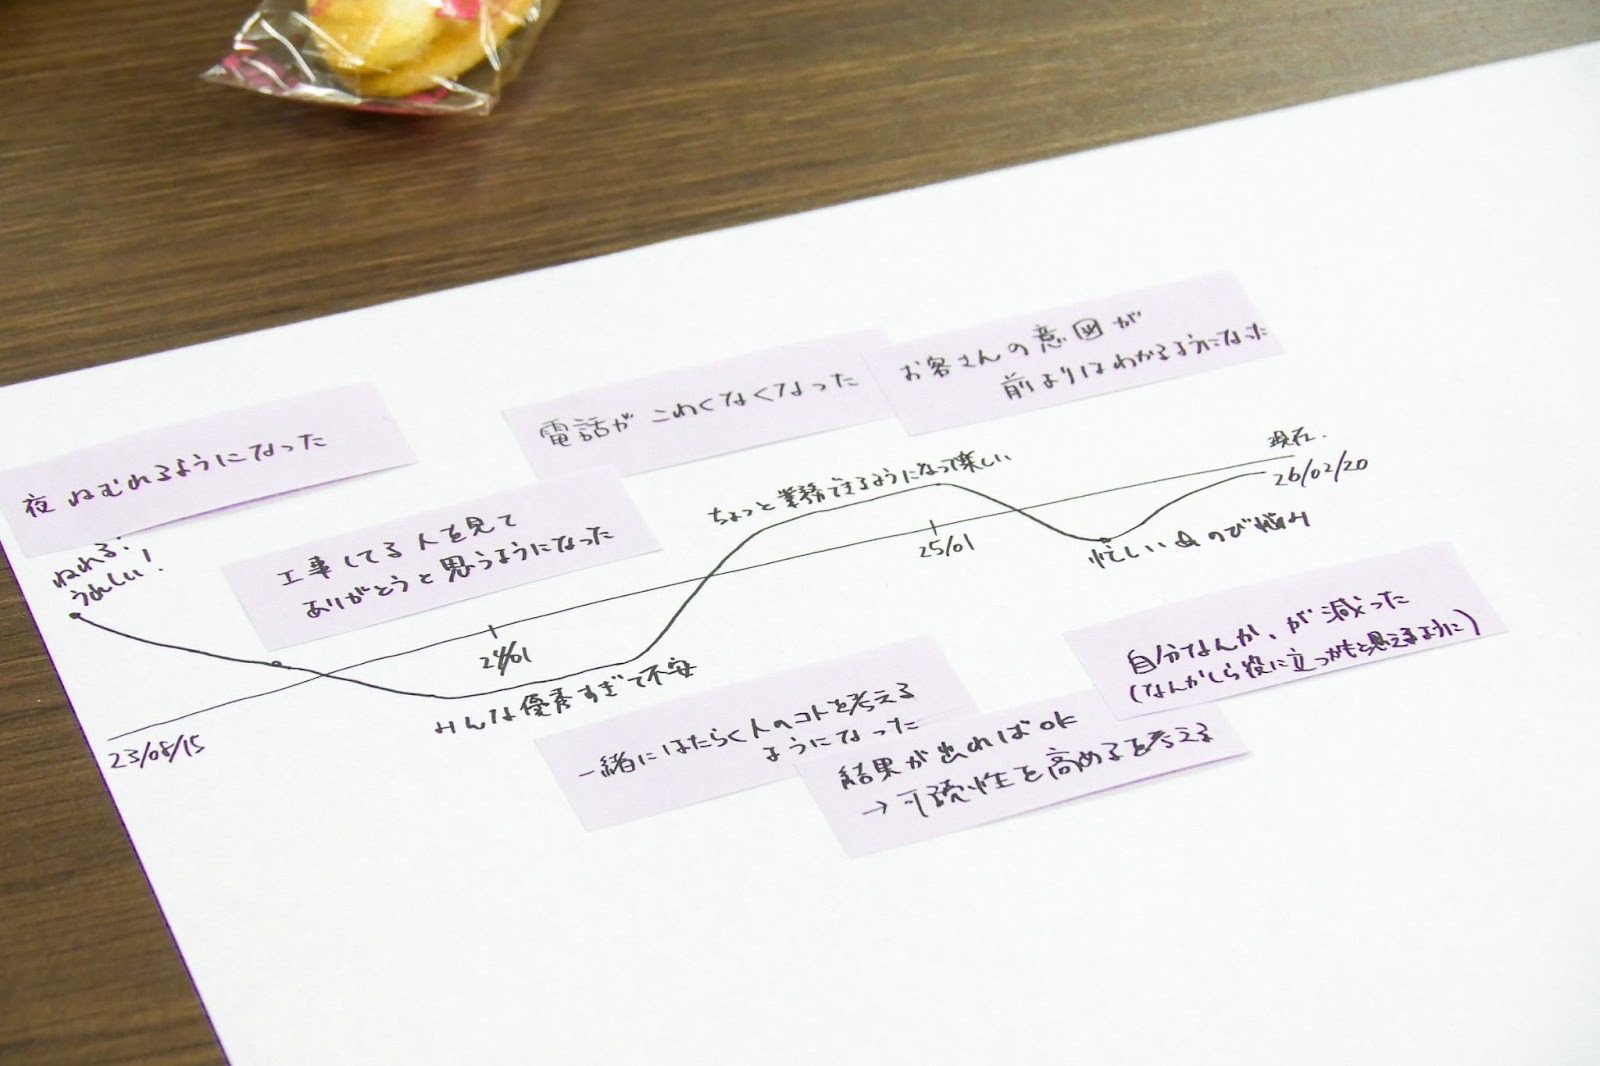 夜 ねむれるようになった
ねれる!
うれしい!
工事してる人を見て
ありがとうと思うようになった
電話が こわくなくなった
お客さんの意図が
前よりはわかるようになった
ちょっと業務できるようになって楽しい
現在.
26/02/20
25/01
忙しい のび悩み
24/01
みんな優秀すぎて不安
23/08/15
一緒にはたらく人のコトを考える
ようになった
結果が出ればOK
→可読性を高めるを考える
自分なんか、が減った
(なんかしら役に立つかもと思えるように)